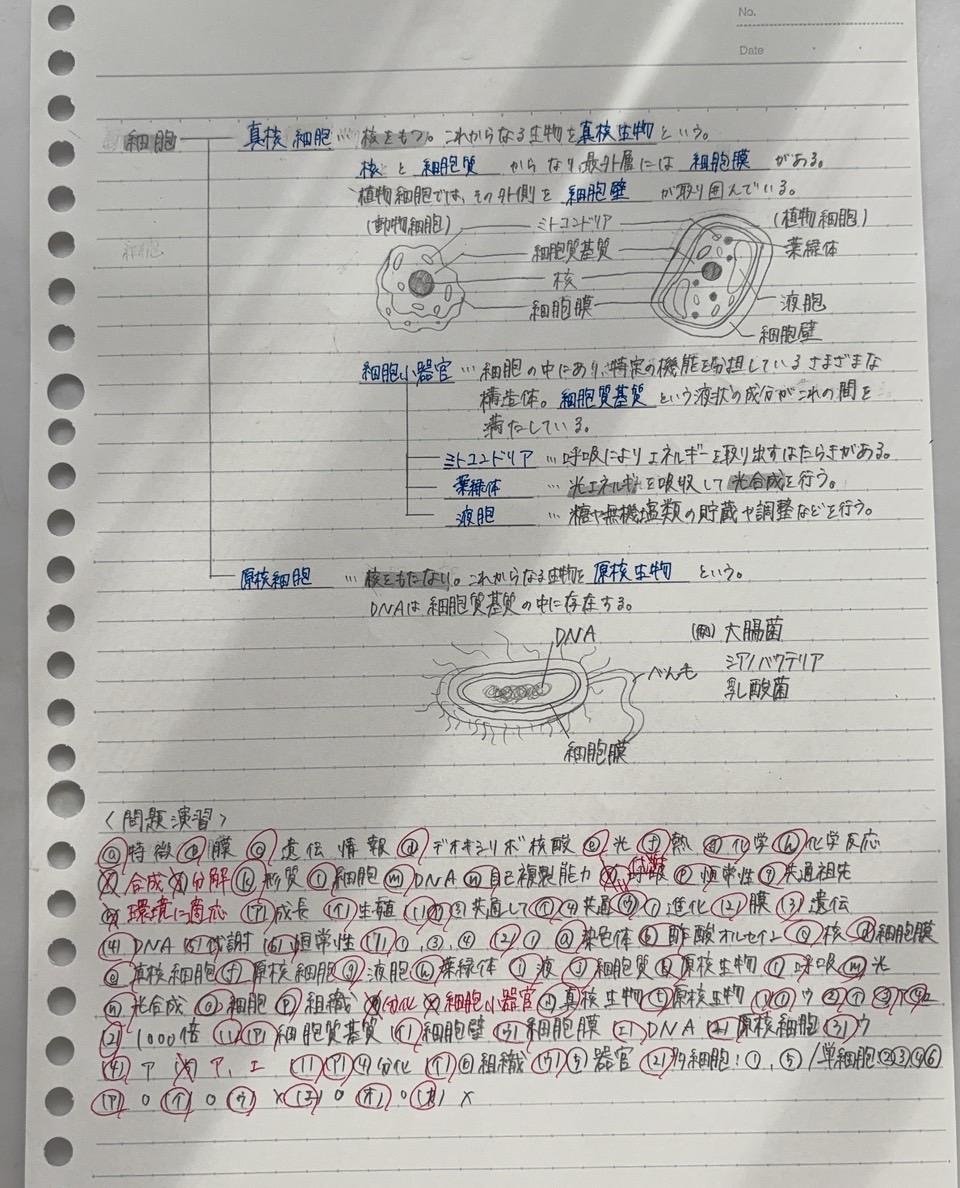 No.
Date
細胞 真核細胞 … 核をもつ。これからなる生物を真核生物という。
核と細胞質からなり最外層には細胞膜がある。
植物細胞では、その外側を細胞壁が取り囲んでいる。
(動物細胞) ミトコンドリア (植物細胞)
細胞質基質 葉緑体
核
細胞膜 液胞
細胞壁
細胞小器官 … 細胞の中にあり、特定の機能を分担しているさまざまな
構造体。細胞質基質という液状の成分がこれの間を
満たしている。
ミトコンドリア … 呼吸によりエネルギーを取り出すはたらきがある。
葉緑体 … 光エネルギーを吸収して光合成を行う。
液胞 … 糖や無機塩類の貯蔵や調整などを行う。
原核細胞 … 核をもたない。これからなる生物を原核生物という。
DNAは細胞質基質の中に存在する。
DNA (例) 大腸菌
べん毛 シアノバクテリア
乳酸菌
細胞膜
〈問題演習〉
ⓐ特徴 ⓑ膜 ⓒ遺伝情報 ⓓデオキシリボ核酸 ⓔ光 ⓕ熱 ⓖ化学 ⓗ化学反応
合成 分解 ⓚ形質 ⓛ細胞 ⓜDNA ⓝ自己複製能力 ⓟ恒常性 ⓠ共通祖先
環境に適応 (ア)成長 (イ)生殖 共通して 共通 進化 (2)膜 (3)遺伝
(4)DNA (5)代謝 (6)恒常性 (1)①,③,④ (2)① ⓐ染色体 ⓑ酢酸オルセイン ⓒ核 ⓓ細胞膜
ⓔ真核細胞 ⓕ原核細胞 ⓖ液胞 ⓗ葉緑体 ⓘ液 ⓙ細胞質 ⓚ原核生物 ⓛ呼吸 ⓜ光
ⓝ光合成 ⓞ細胞 ⓟ組織 分化 細胞小器官 真核生物 原核生物 (1)①ウ ②イ
(2)1000倍 (1)(ア)細胞質基質 (イ)細胞壁 (ウ)細胞膜 (エ)DNA (2)原核細胞 (3)ウ
(4)ア ア,エ (1)(ア)④分化 (イ)⑥組織 (ウ)⑤器官 (2)多細胞:①,⑤/単細胞:②③④⑥
(ア)○ (イ)○ (ウ)× (エ)○ (オ)○ (カ)×